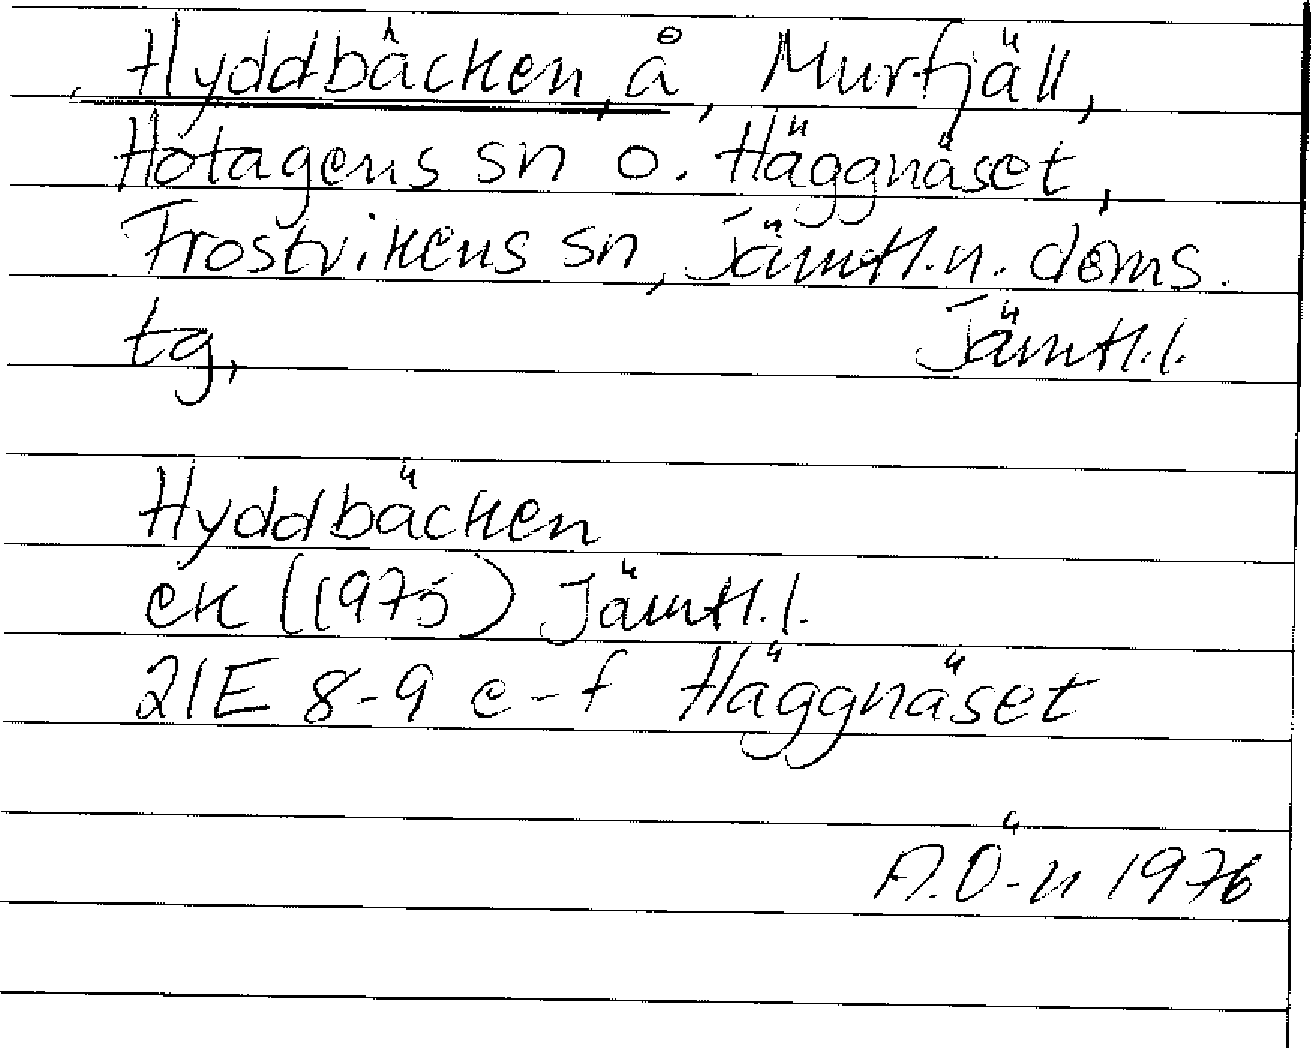 Hyddbäcken, å, Murfjäll,
Hotagens sn o. Häggnäset,
Frostvikens sn, Jämtl.n. doms.
tg, Jämtl.l.
Hyddbäcken
ek (1975) Jämtl.l.
21E 8-9 e-f Häggnäset
A.Ö-n 1976